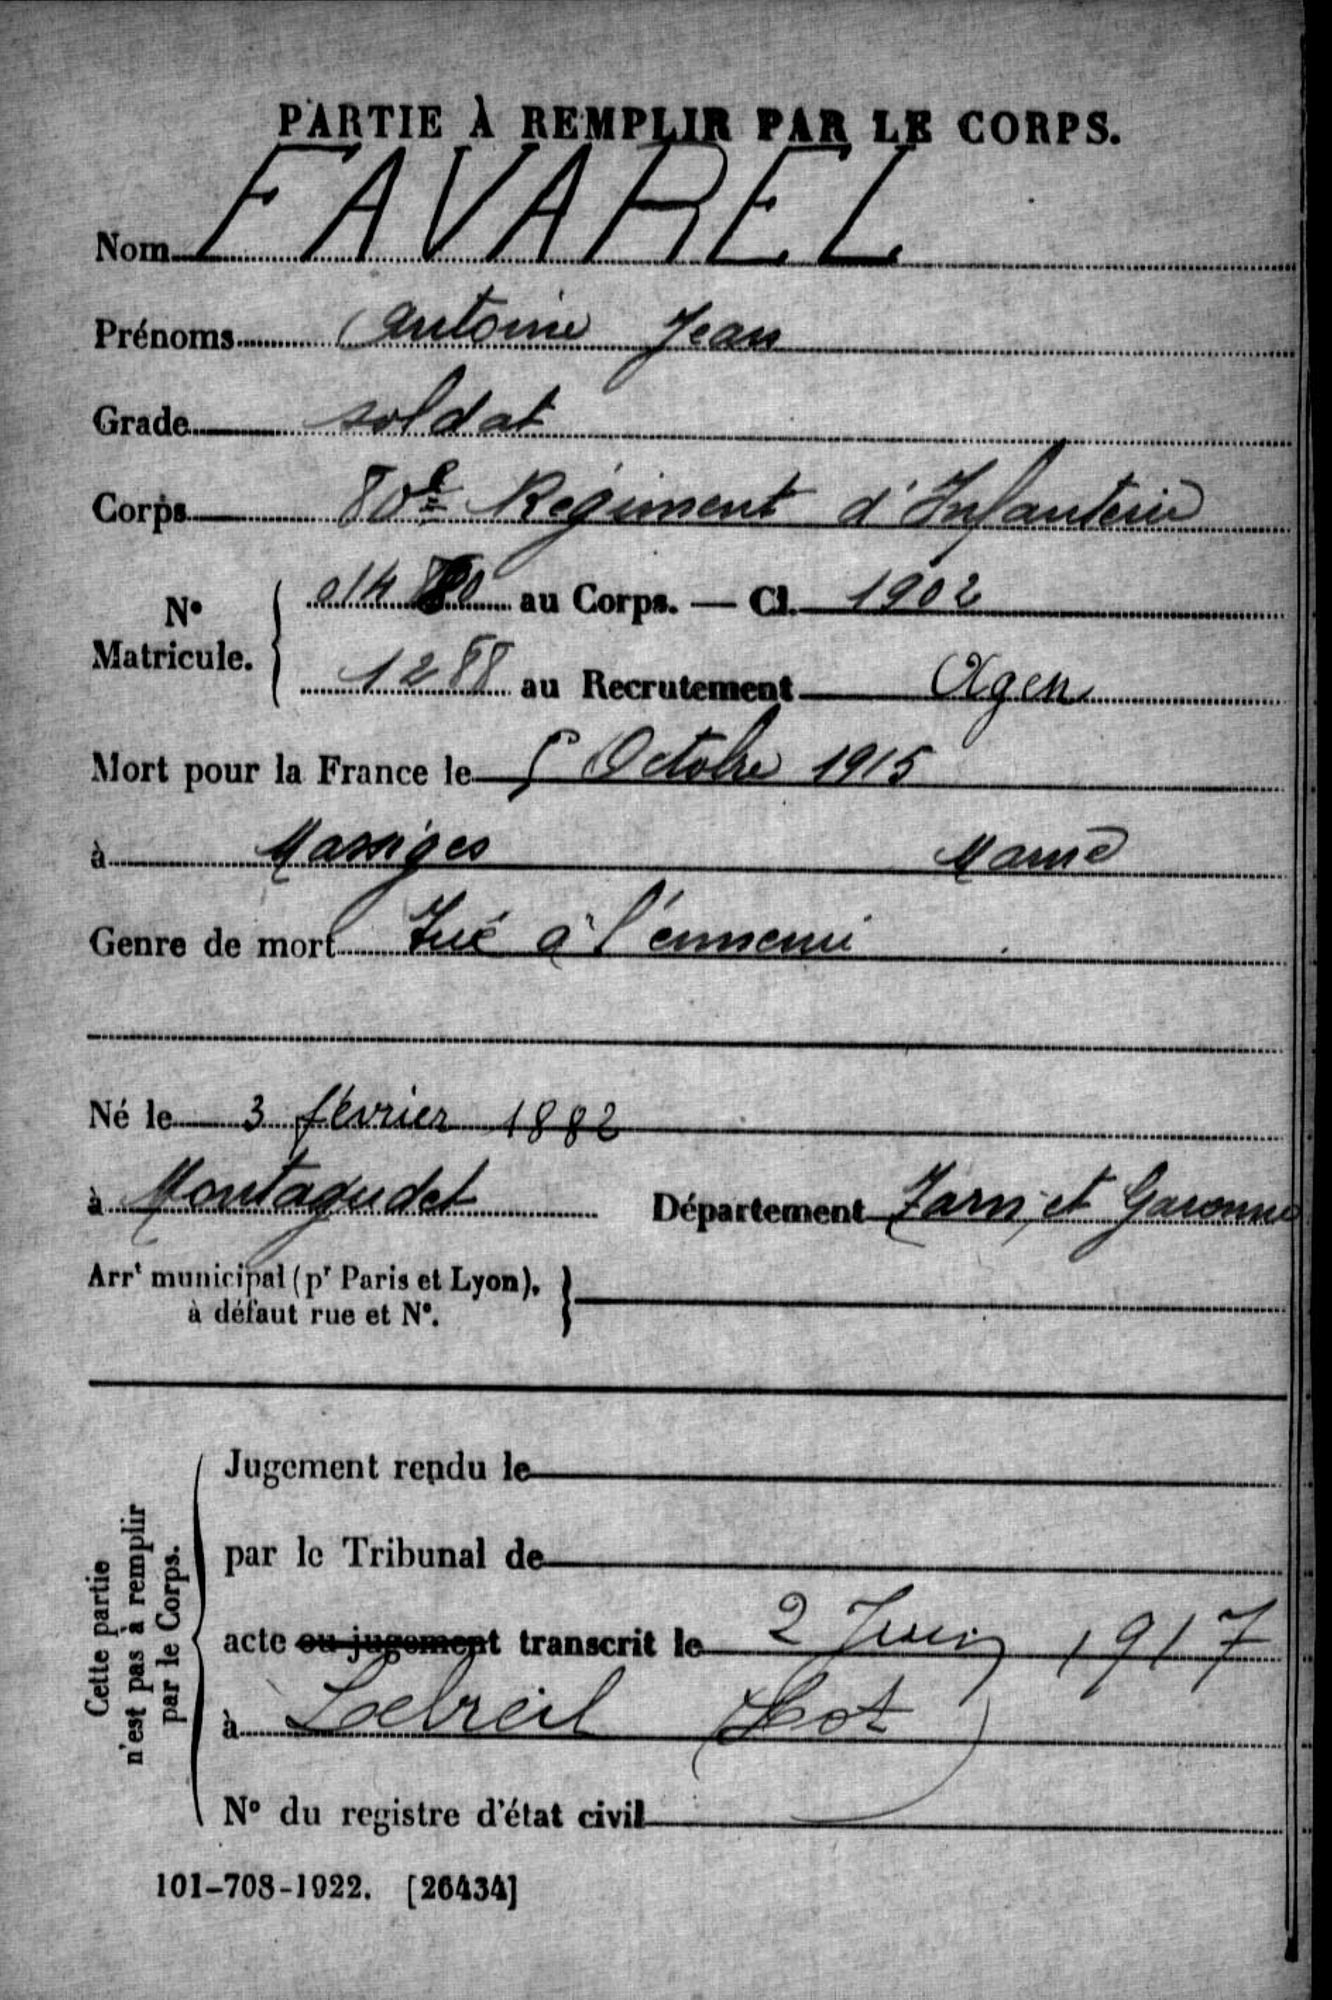 PARTIE À REMPLIR PAR LE CORPS.
Nom FAVAREL
Prénoms Antoine Jean
Grade soldat
Corps 80e Régiment d'Infanterie
N° Matricule. { au Corps. — Cl. 1902
1288 au Recrutement Agen
Mort pour la France le 5 Octobre 1915
à Massiges Marne
Genre de mort Tué à l'ennemi
Né le 3 février 1882
à Montagudet Département Tarn et Garonne
Arrt municipal (pr Paris et Lyon), }
à défaut rue et N°.
Cette partie
n'est pas à remplir
par le Corps.
Jugement rendu le
par le Tribunal de
acte ou jugement transcrit le 2 Juin 1917
à Lebreil (Lot)
N° du registre d'état civil
101-708-1922. [26434]